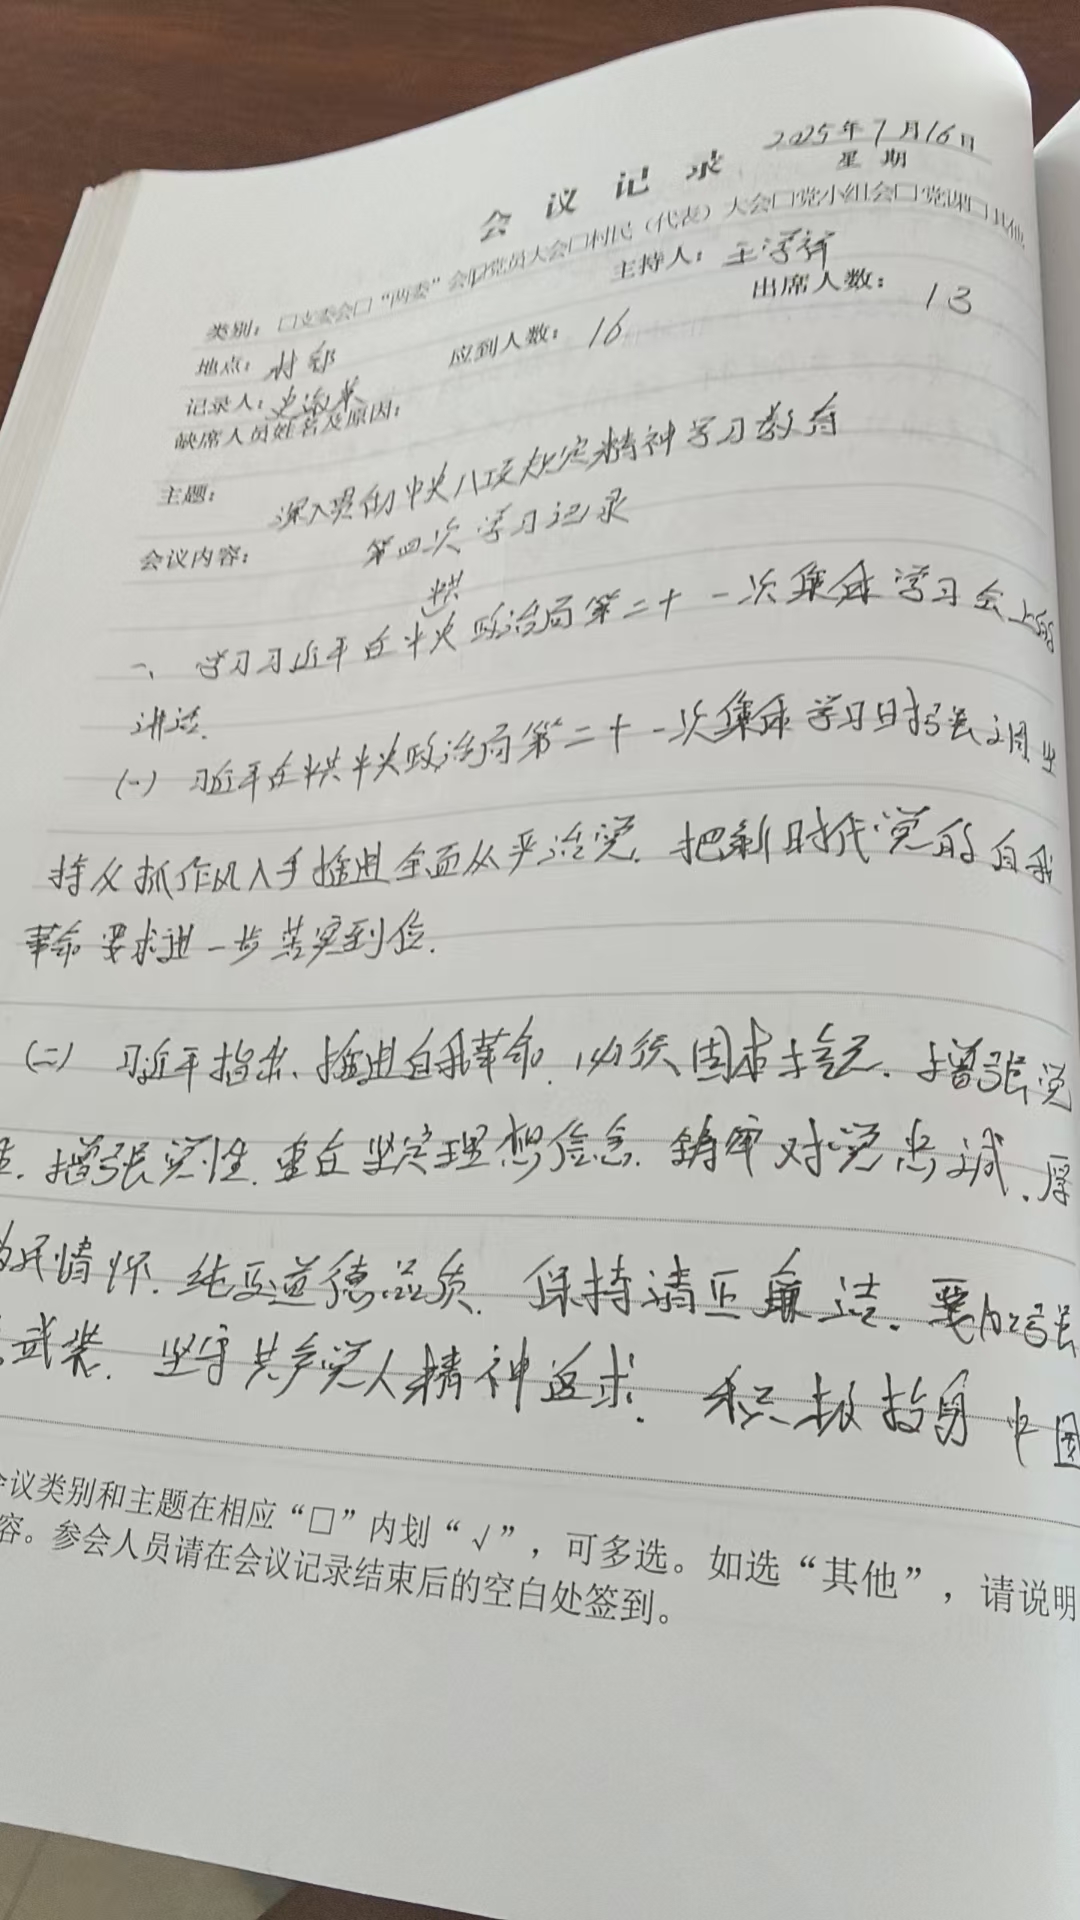 2025年7月16日
会议记录 星期
类别：□支委会□“两委”会☑党员大会□村民（代表）大会□党小组会□党课□其他
地点：村部 主持人：王学祥
记录人： 应到人数：16 出席人数：13
缺席人员姓名及原因：
主题： 深入贯彻中央八项规定精神学习教育
会议内容： 第四次学习记录
一、学习习近平在中共中央政治局第二十一次集体学习会上的
讲话.
(一) 习近平在中共中央政治局第二十一次集体学习时强调坚
持以抓作风入手推进全面从严治党. 把新时代党的自我
革命要求进一步落实到位.
(二) 习近平指出、推进自我革命. 必须固本培元. 增强党
性. 增强党性. 重在坚定理想信念. 铸牢对党忠诚. 厚
为民情怀. 纯正道德品质. 保持清正廉洁. 要加强
武装. 坚守共产党人精神追求. 积极投身中国
会议类别和主题在相应“□”内划“√”，可多选。如选“其他”，请说明
容。参会人员请在会议记录结束后的空白处签到。